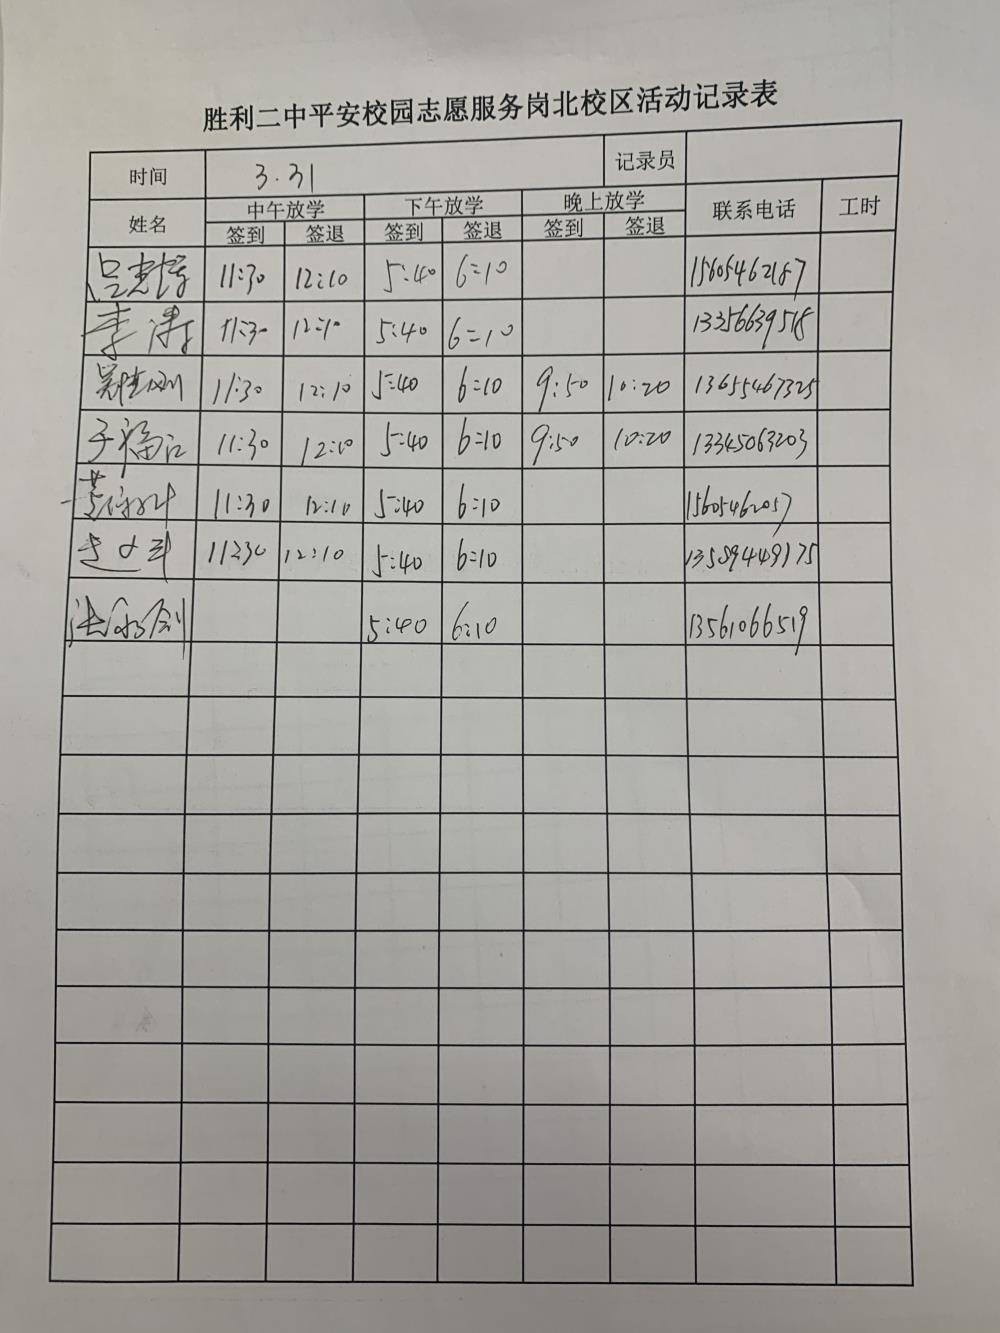 胜利二中平安校园志愿服务岗北校区活动记录表
时间 3.31 记录员
姓名 中午放学 下午放学 晚上放学 联系电话 工时
签到 签退 签到 签退 签到 签退
11:30 12:10 5:40 6:10 15605462187
李涛 11:30 12:10 5:40 6:10 13356639518
11:30 12:10 5:40 6:10 9:50 10:20 13655467325
于福江 11:30 12:10 5:40 6:10 9:50 10:20 13345063203
11:30 12:10 5:40 6:10 15605462057
11:30 12:10 5:40 6:10 13589449175
5:40 6:10 13561066519